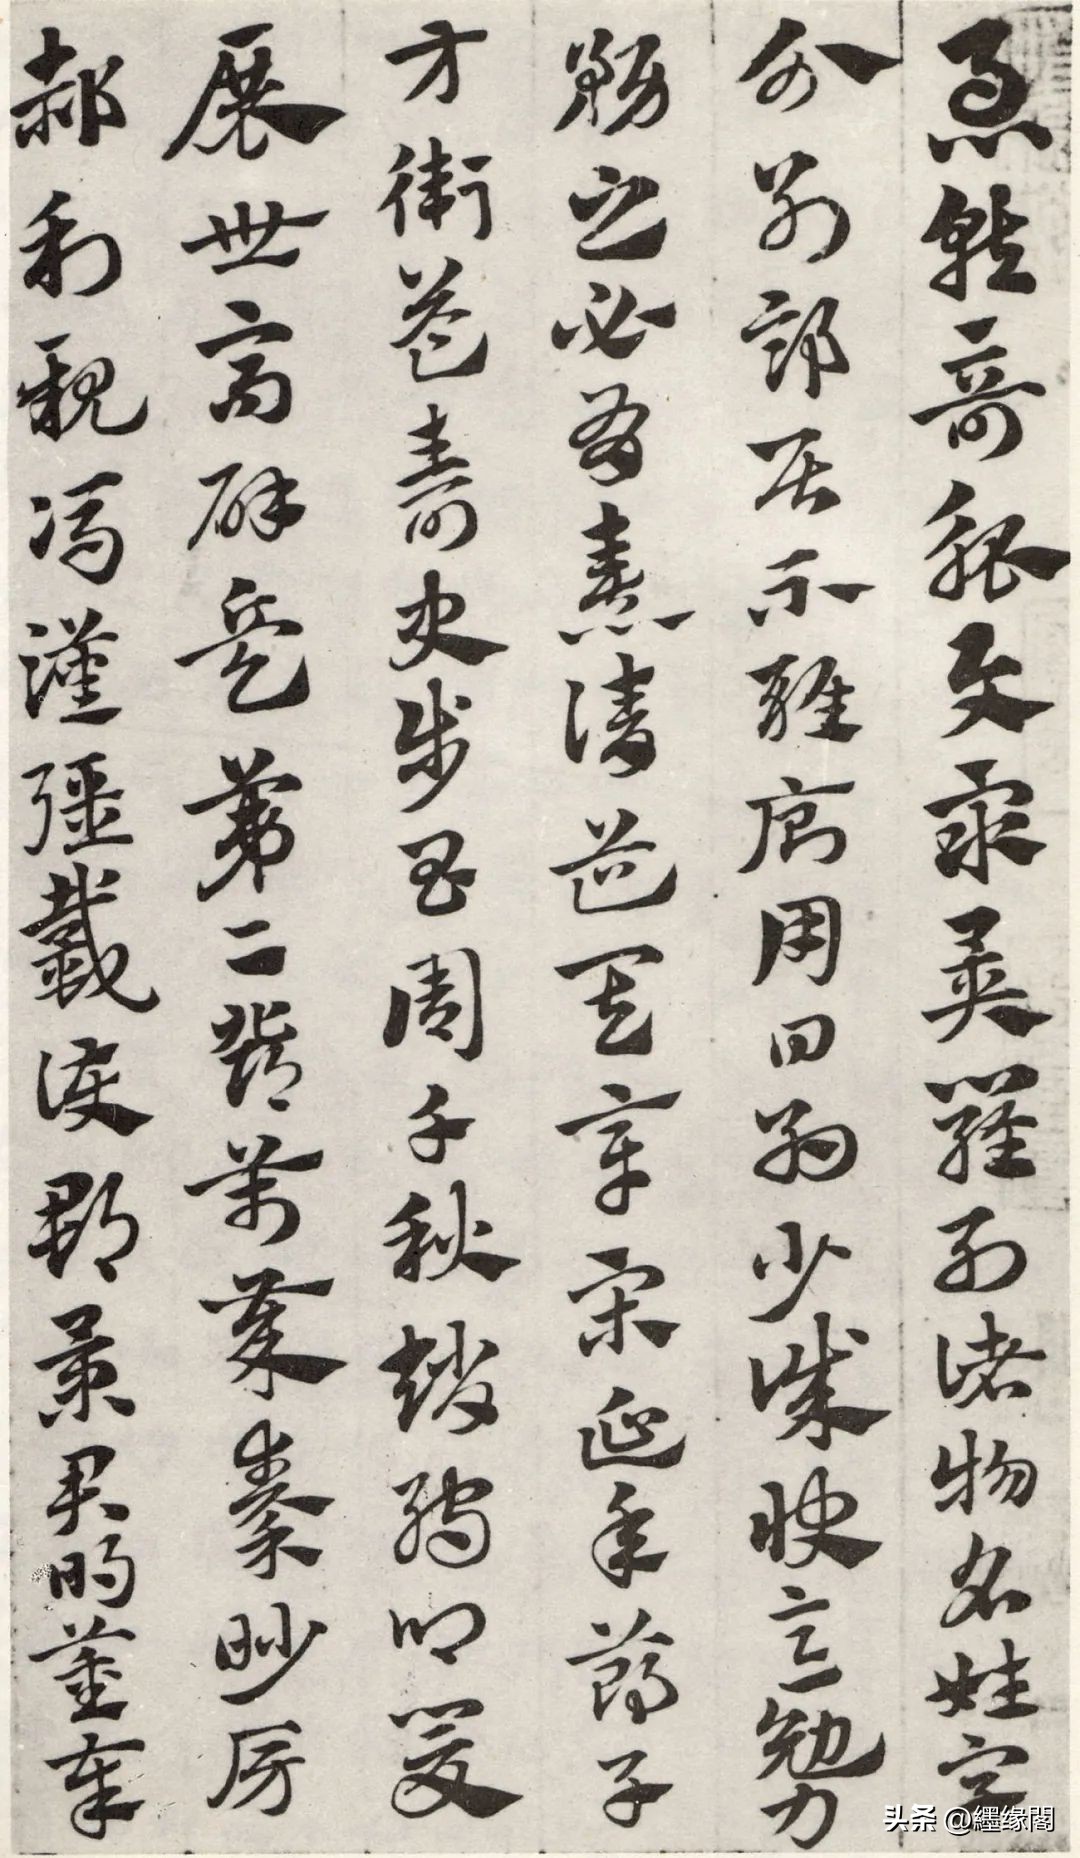 急就奇觚與衆異羅列諸物名姓字
分別部居不雜廁用日約少誠快意勉力
務之必有憙請道其章宋延年鄭子
方衛益壽史步昌周千秋趙孺卿爰
展世高辟兵第二鄧萬歲秦眇房
郝利親馮漢彊戴護郡景君明董奉
头条 @纆缘閣